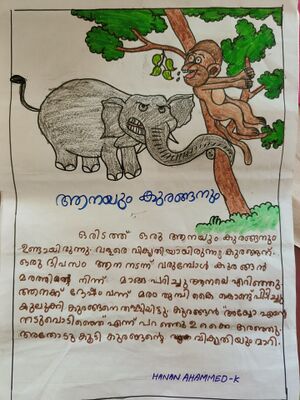 ആനയും കുരങ്ങനും
ഒരിടത്ത് ഒരു ആനയും കുരങ്ങനും
ഉണ്ടായിരുന്നു. വളരെ വികൃതിയായിരുന്നു കുരങ്ങൻ.
ഒരു ദിവസം ആന നടന്ന് വരുമ്പോൾ കുരങ്ങൻ
മരത്തിൽ നിന്ന് മാങ്ങ പറിച്ചു ആനയെ എറിഞ്ഞു.
ആനക്ക് ദേഷ്യം വന്ന് മരം തുമ്പി കൈ കൊണ്ട് പിടിച്ചു
കുലുക്കി കുരങ്ങനെ തള്ളിയിട്ടു. കുരങ്ങൻ അയ്യോ എന്റെ
നടുവൊടിഞ്ഞേ എന്ന് പറഞ്ഞു കരഞ്ഞു.
അതോടു കൂടി കുരങ്ങന്റെ വികൃതിയും മാറി.
HANAN AHAMMED-K